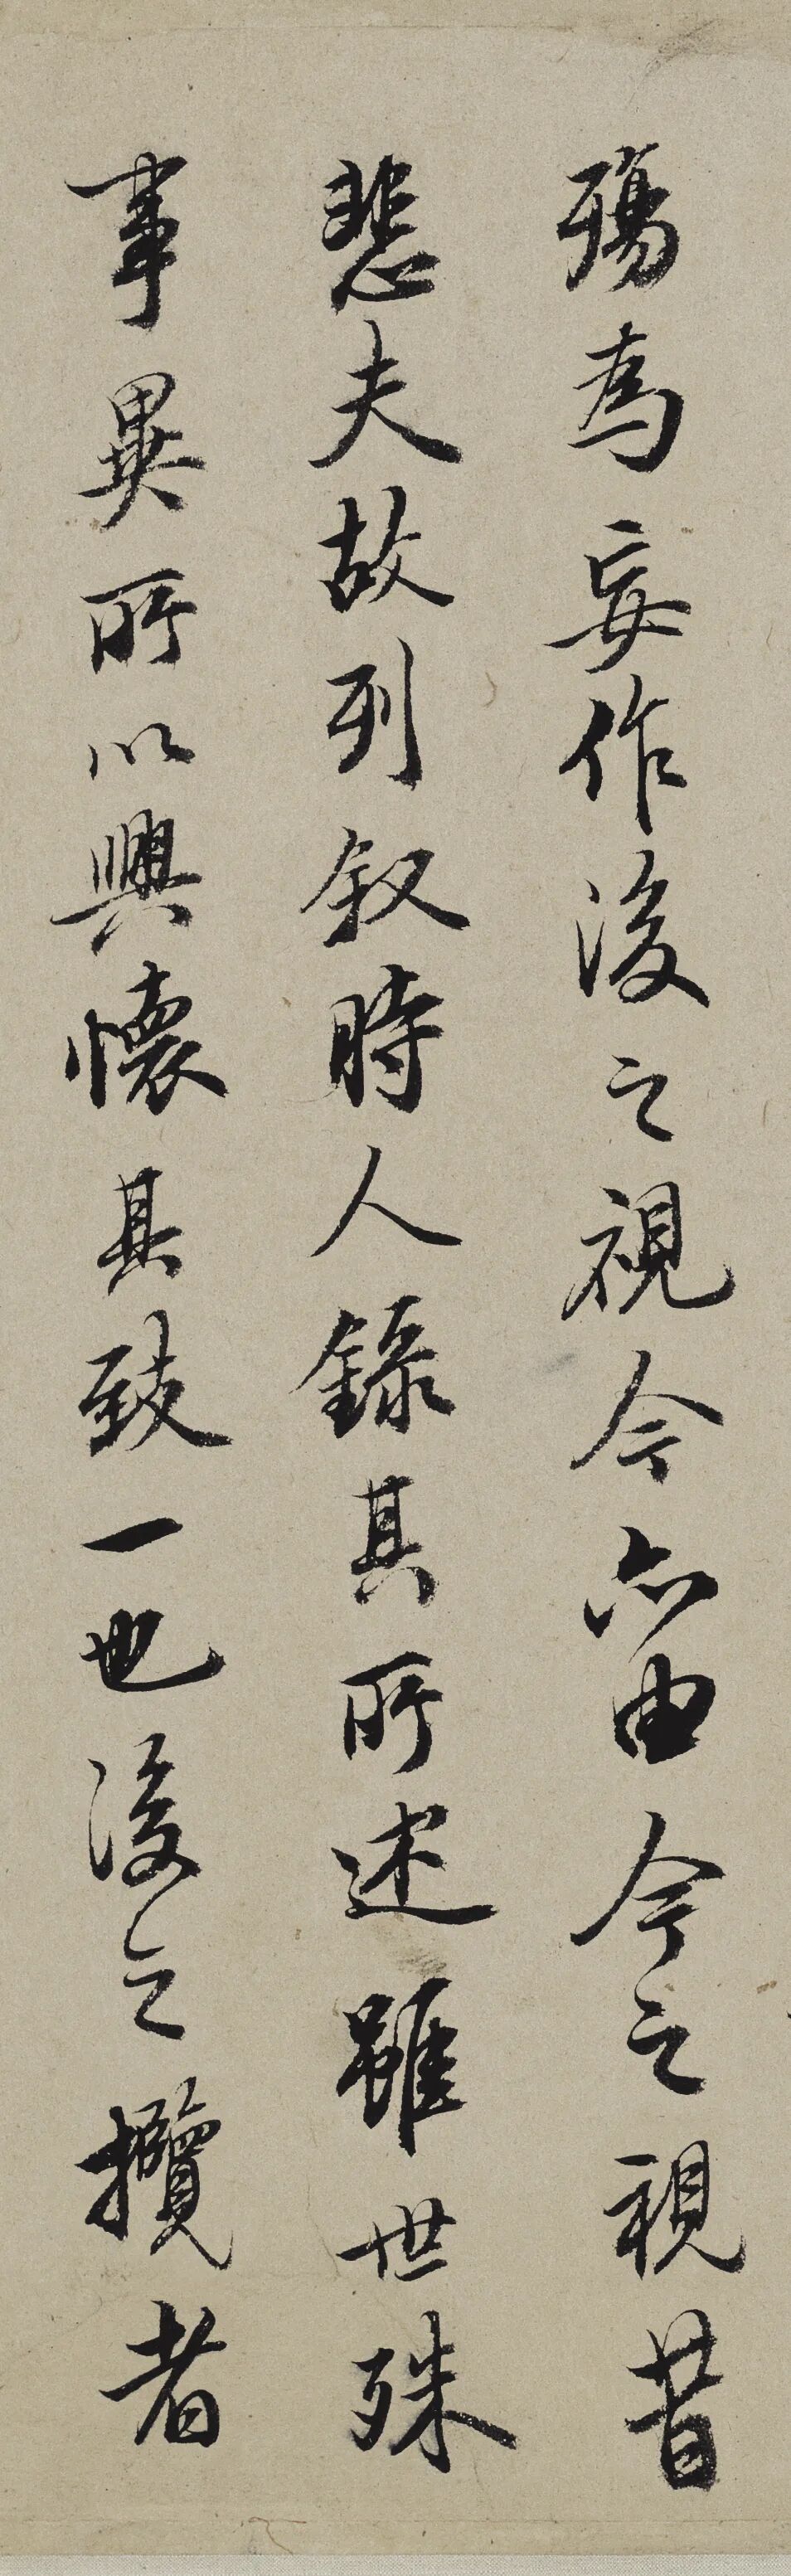 殤為妄作後之視今亦由今之視昔
悲夫故列叙時人錄其所述雖世殊
事異所以興懷其致一也後之攬者